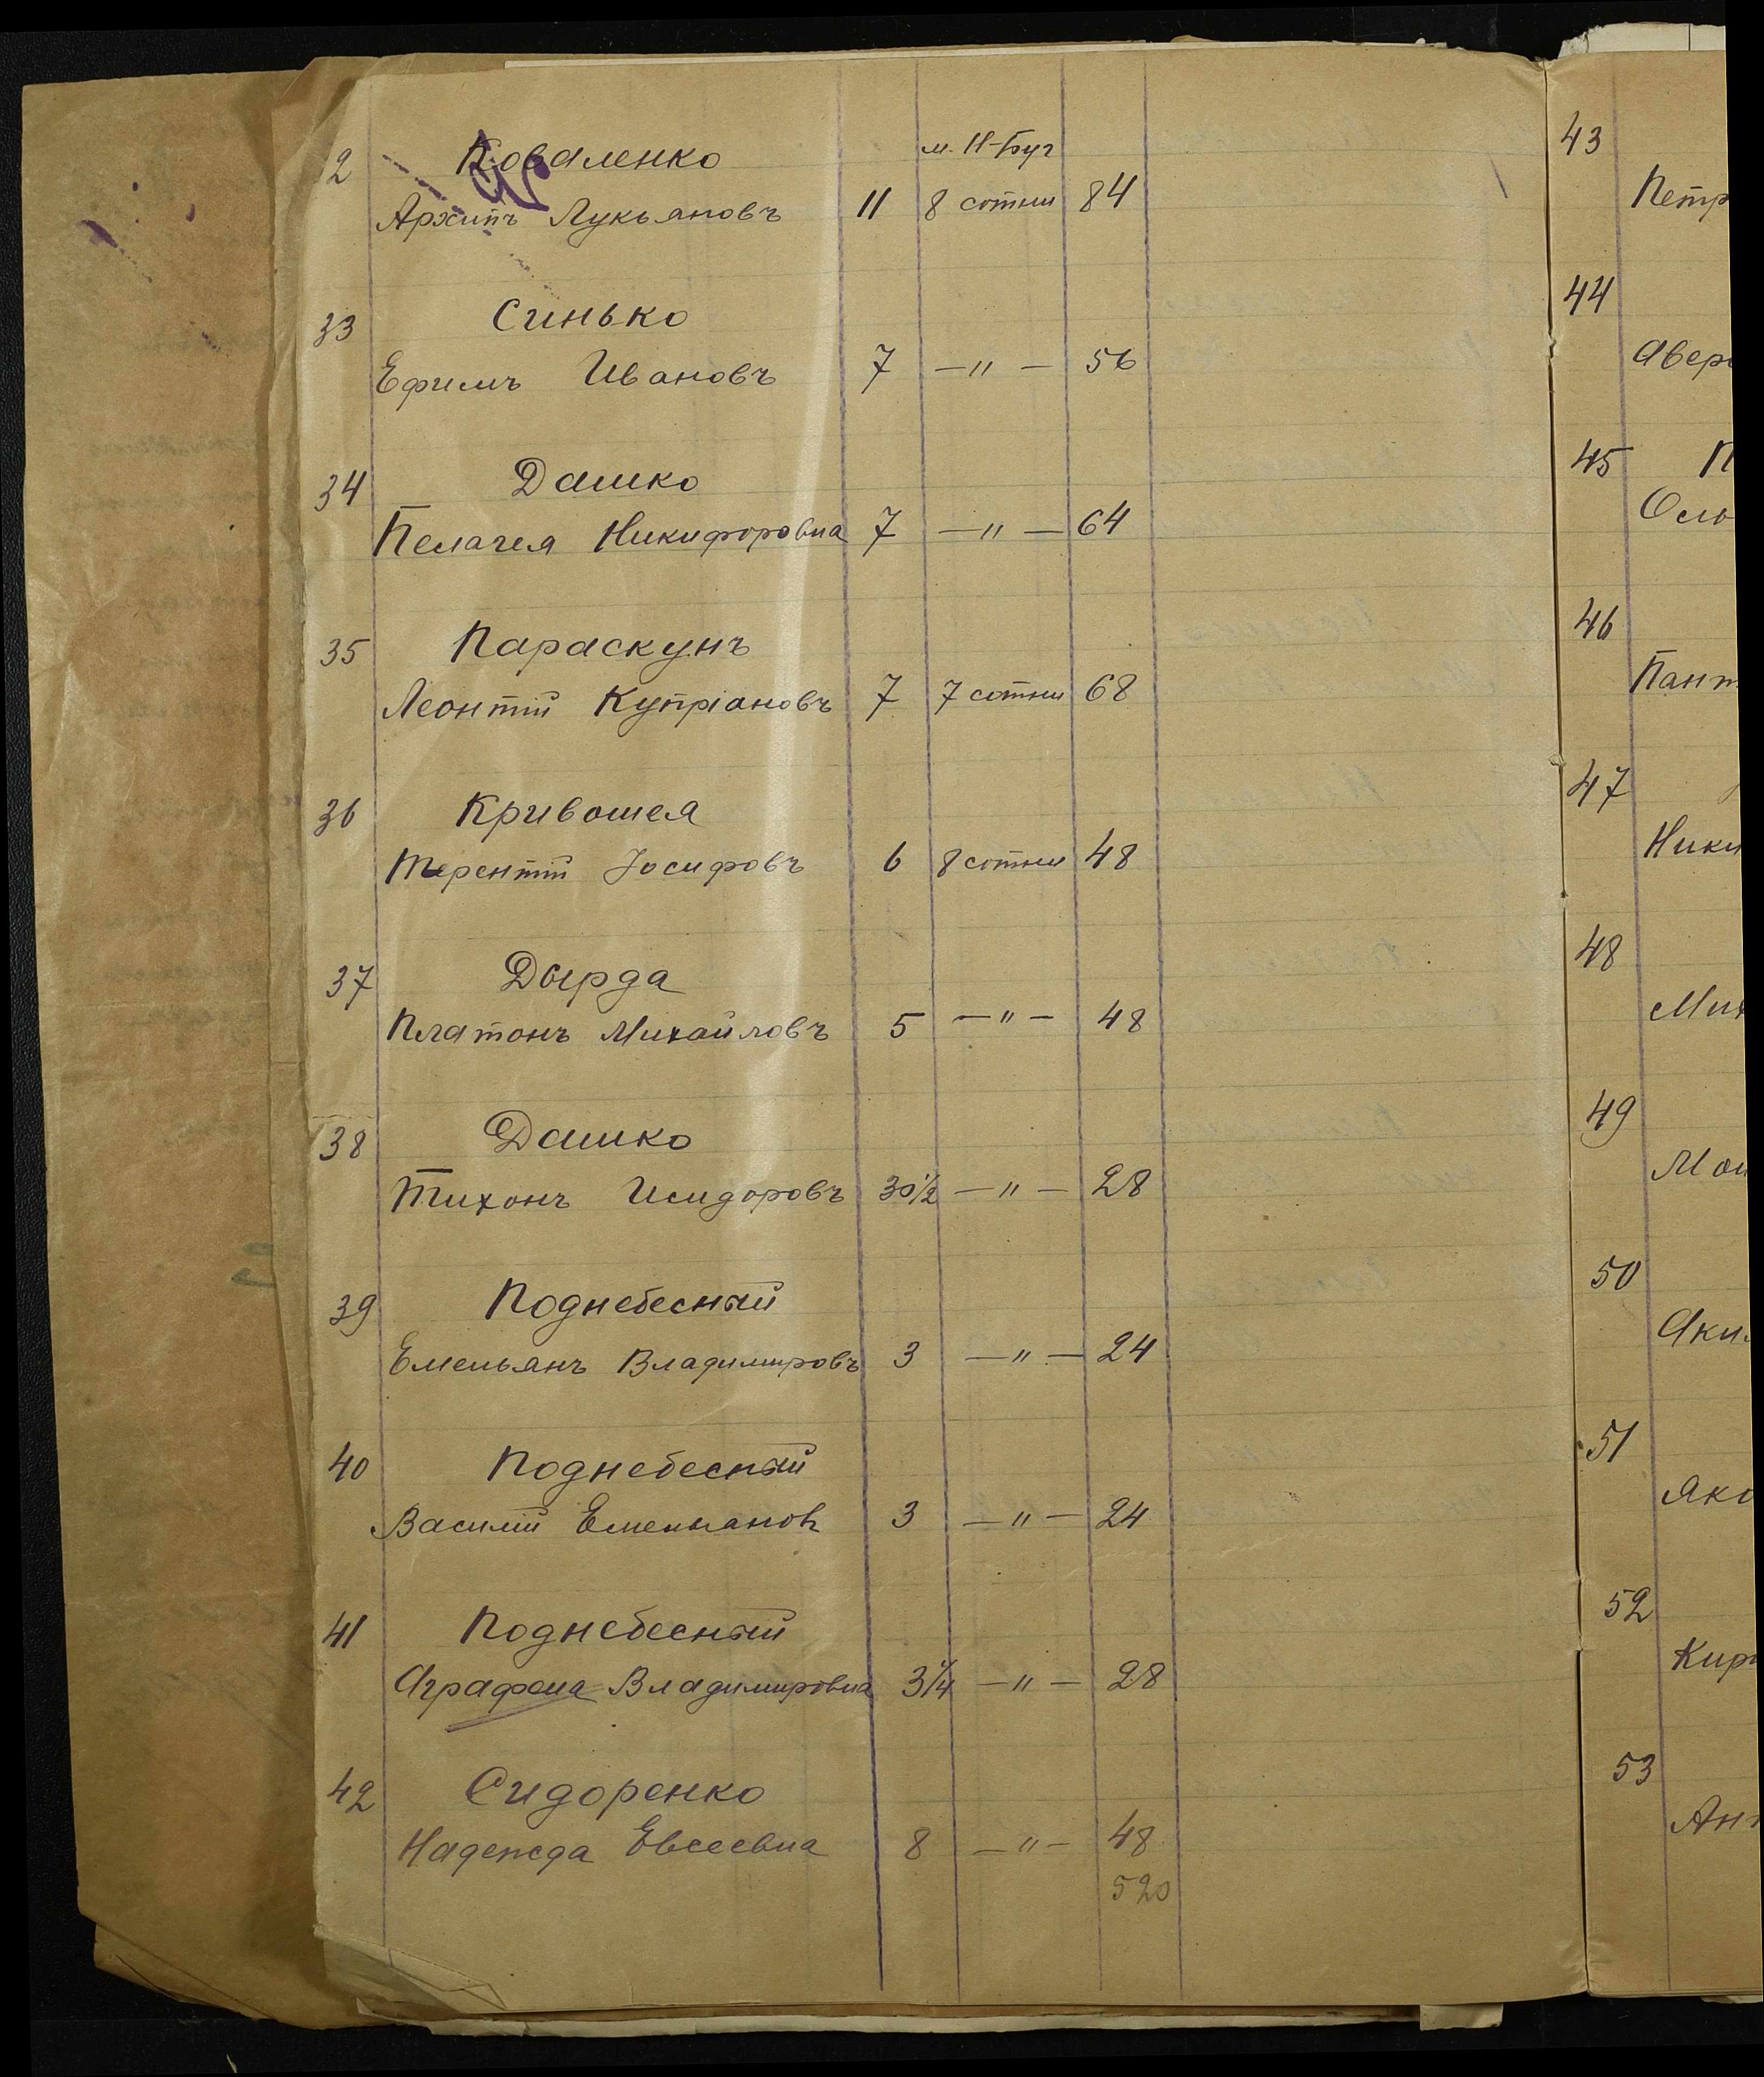 м. Н-Буг
2 Коваленко
Архипъ Лукьяновъ 11 8 сотни 84
33 Синько
Ефимъ Ивановъ 7 — " — 56
34 Дашко
Пелагея Никифоровна 7 — " — 64
35 Параскунъ
Леонтій Купріановъ 7 7 сотни 68
36 Кривошея
Терентій Іосифовъ 6 8 сотни 48
37 Дырда
Платонъ Михайловъ 5 — " — 48
38 Дашко
Тихонъ Исидоровъ 3 1/2 — " — 28
39 Поднебесный
Емельянъ Владимировъ 3 — " — 24
40 Поднебесный
Василій Емельяновъ 3 — " — 24
41 Поднебесный
Аграфена Владимировна 3 1/4 — " — 28
42 Сидоренко
Надежда Евсеевна 8 — " — 48
520
43
Петр
44
Авер
45 П
46
Пант
47
Ники
48
Мих
49
50
Аки
51
Яко
52
Кир
53
Ан